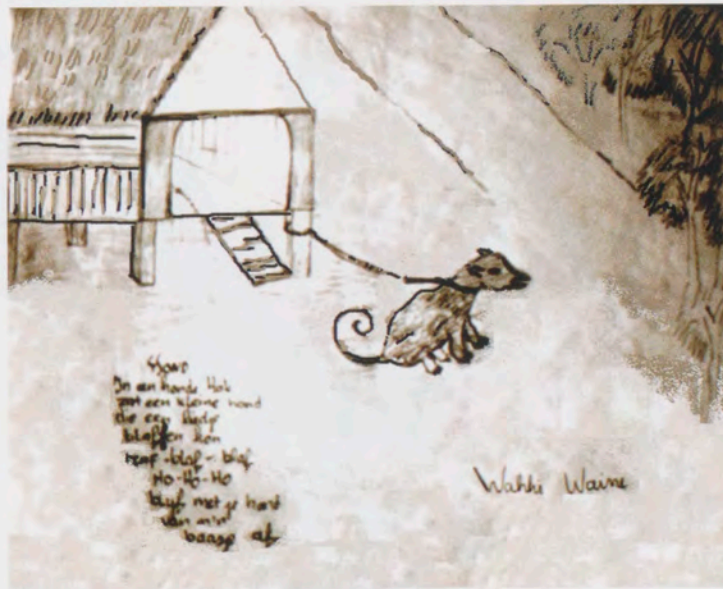 In een honde Hok
zat een kleine hond
die een liedje
blaffen kon
-blaf-blaf
Ho-Ho-Ho
blijf met je hand
van m'n
baasje af
Wahhi Waine